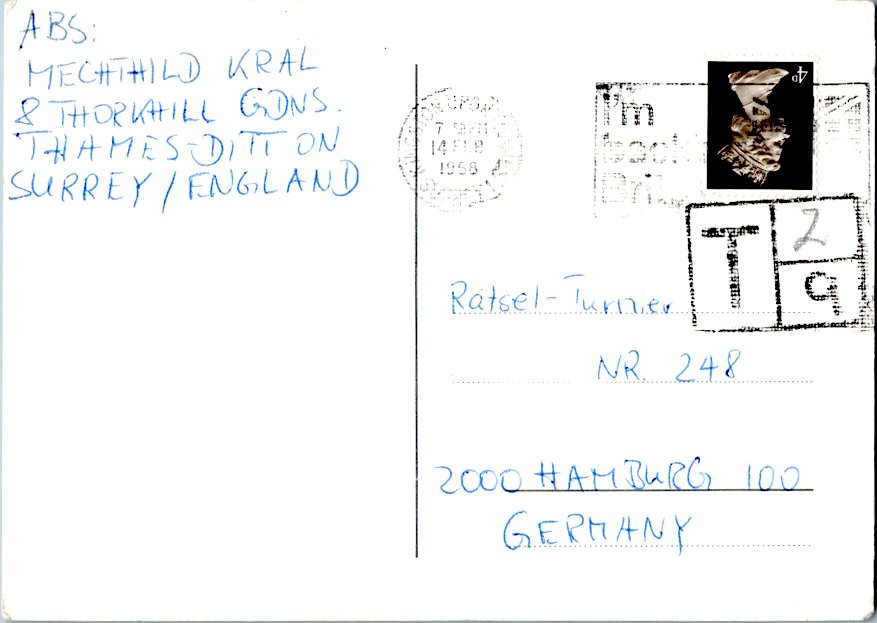 ABS:
MECHTHILD KRAL
8 THORKHILL GDNS.
THAMES-DITTON
SURREY/ENGLAND
7
14 FEB
1968
I'm
backing
4D
T
2
9
Rätsel-Turnier
NR. 248
2000 HAMBURG 100
GERMANY